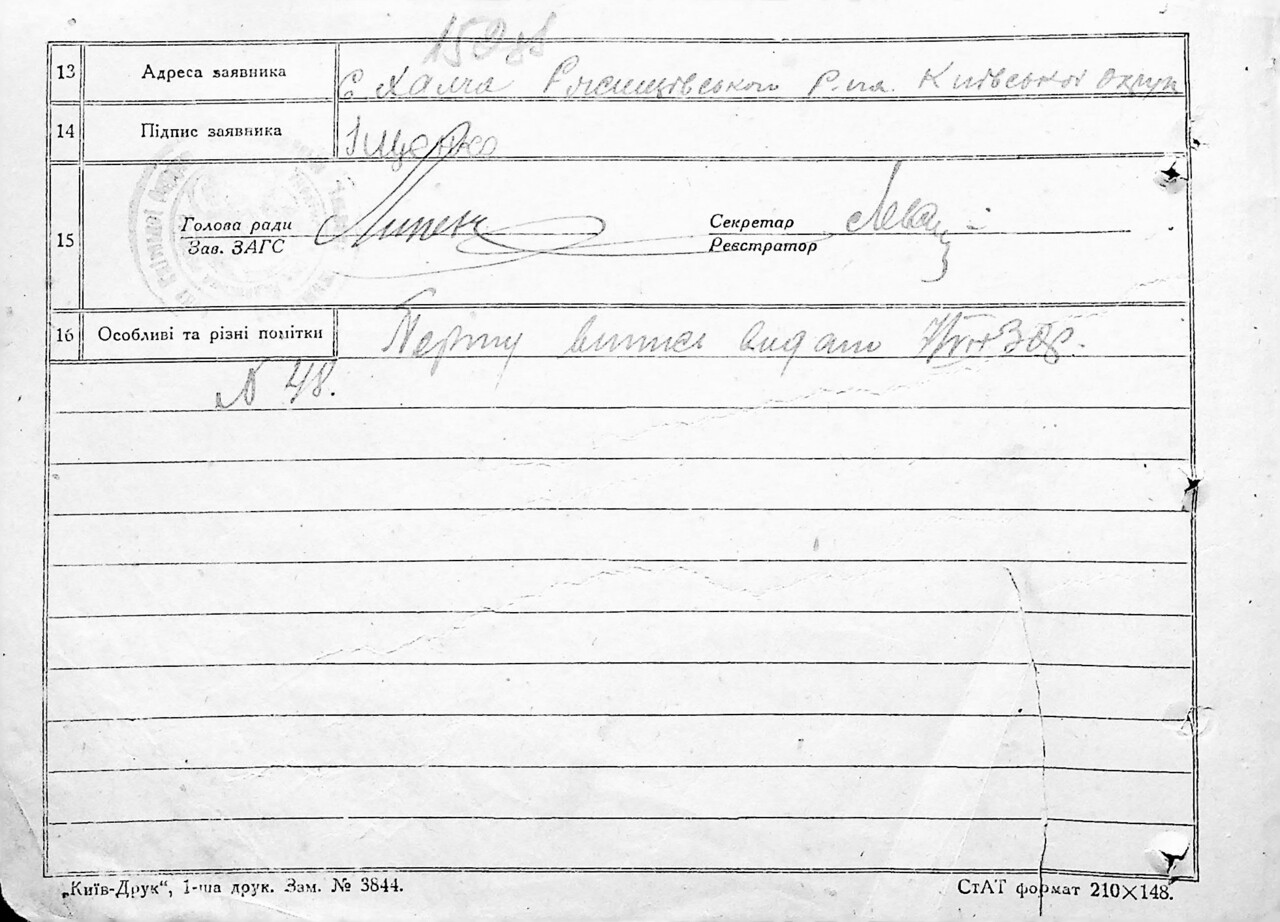 13 Адреса заявника с Халча Ржищівського р-на. Київської округи
14 Підпис заявника Іщенко
15 Голова ради Секретар
Зав. ЗАГС Реєстратор
16 Особливі та різні помітки Першу випись видат
№ 48.
„Київ-Друк“, 1-ша друк. Зам. № 3844. СтАТ формат 210×148.